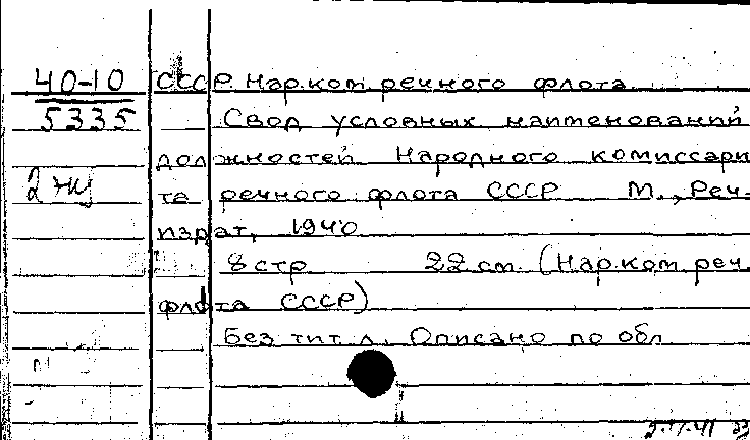 40-10
5335
2 экз
СССР Нар.ком речного флота
Свод условных наименований
должностей Народного комиссари
та речного флота СССР М., Реч-
издат, 1940
8 стр 22 см. (Нар.ком реч.
флота СССР)
Без тит л. Описано по обл